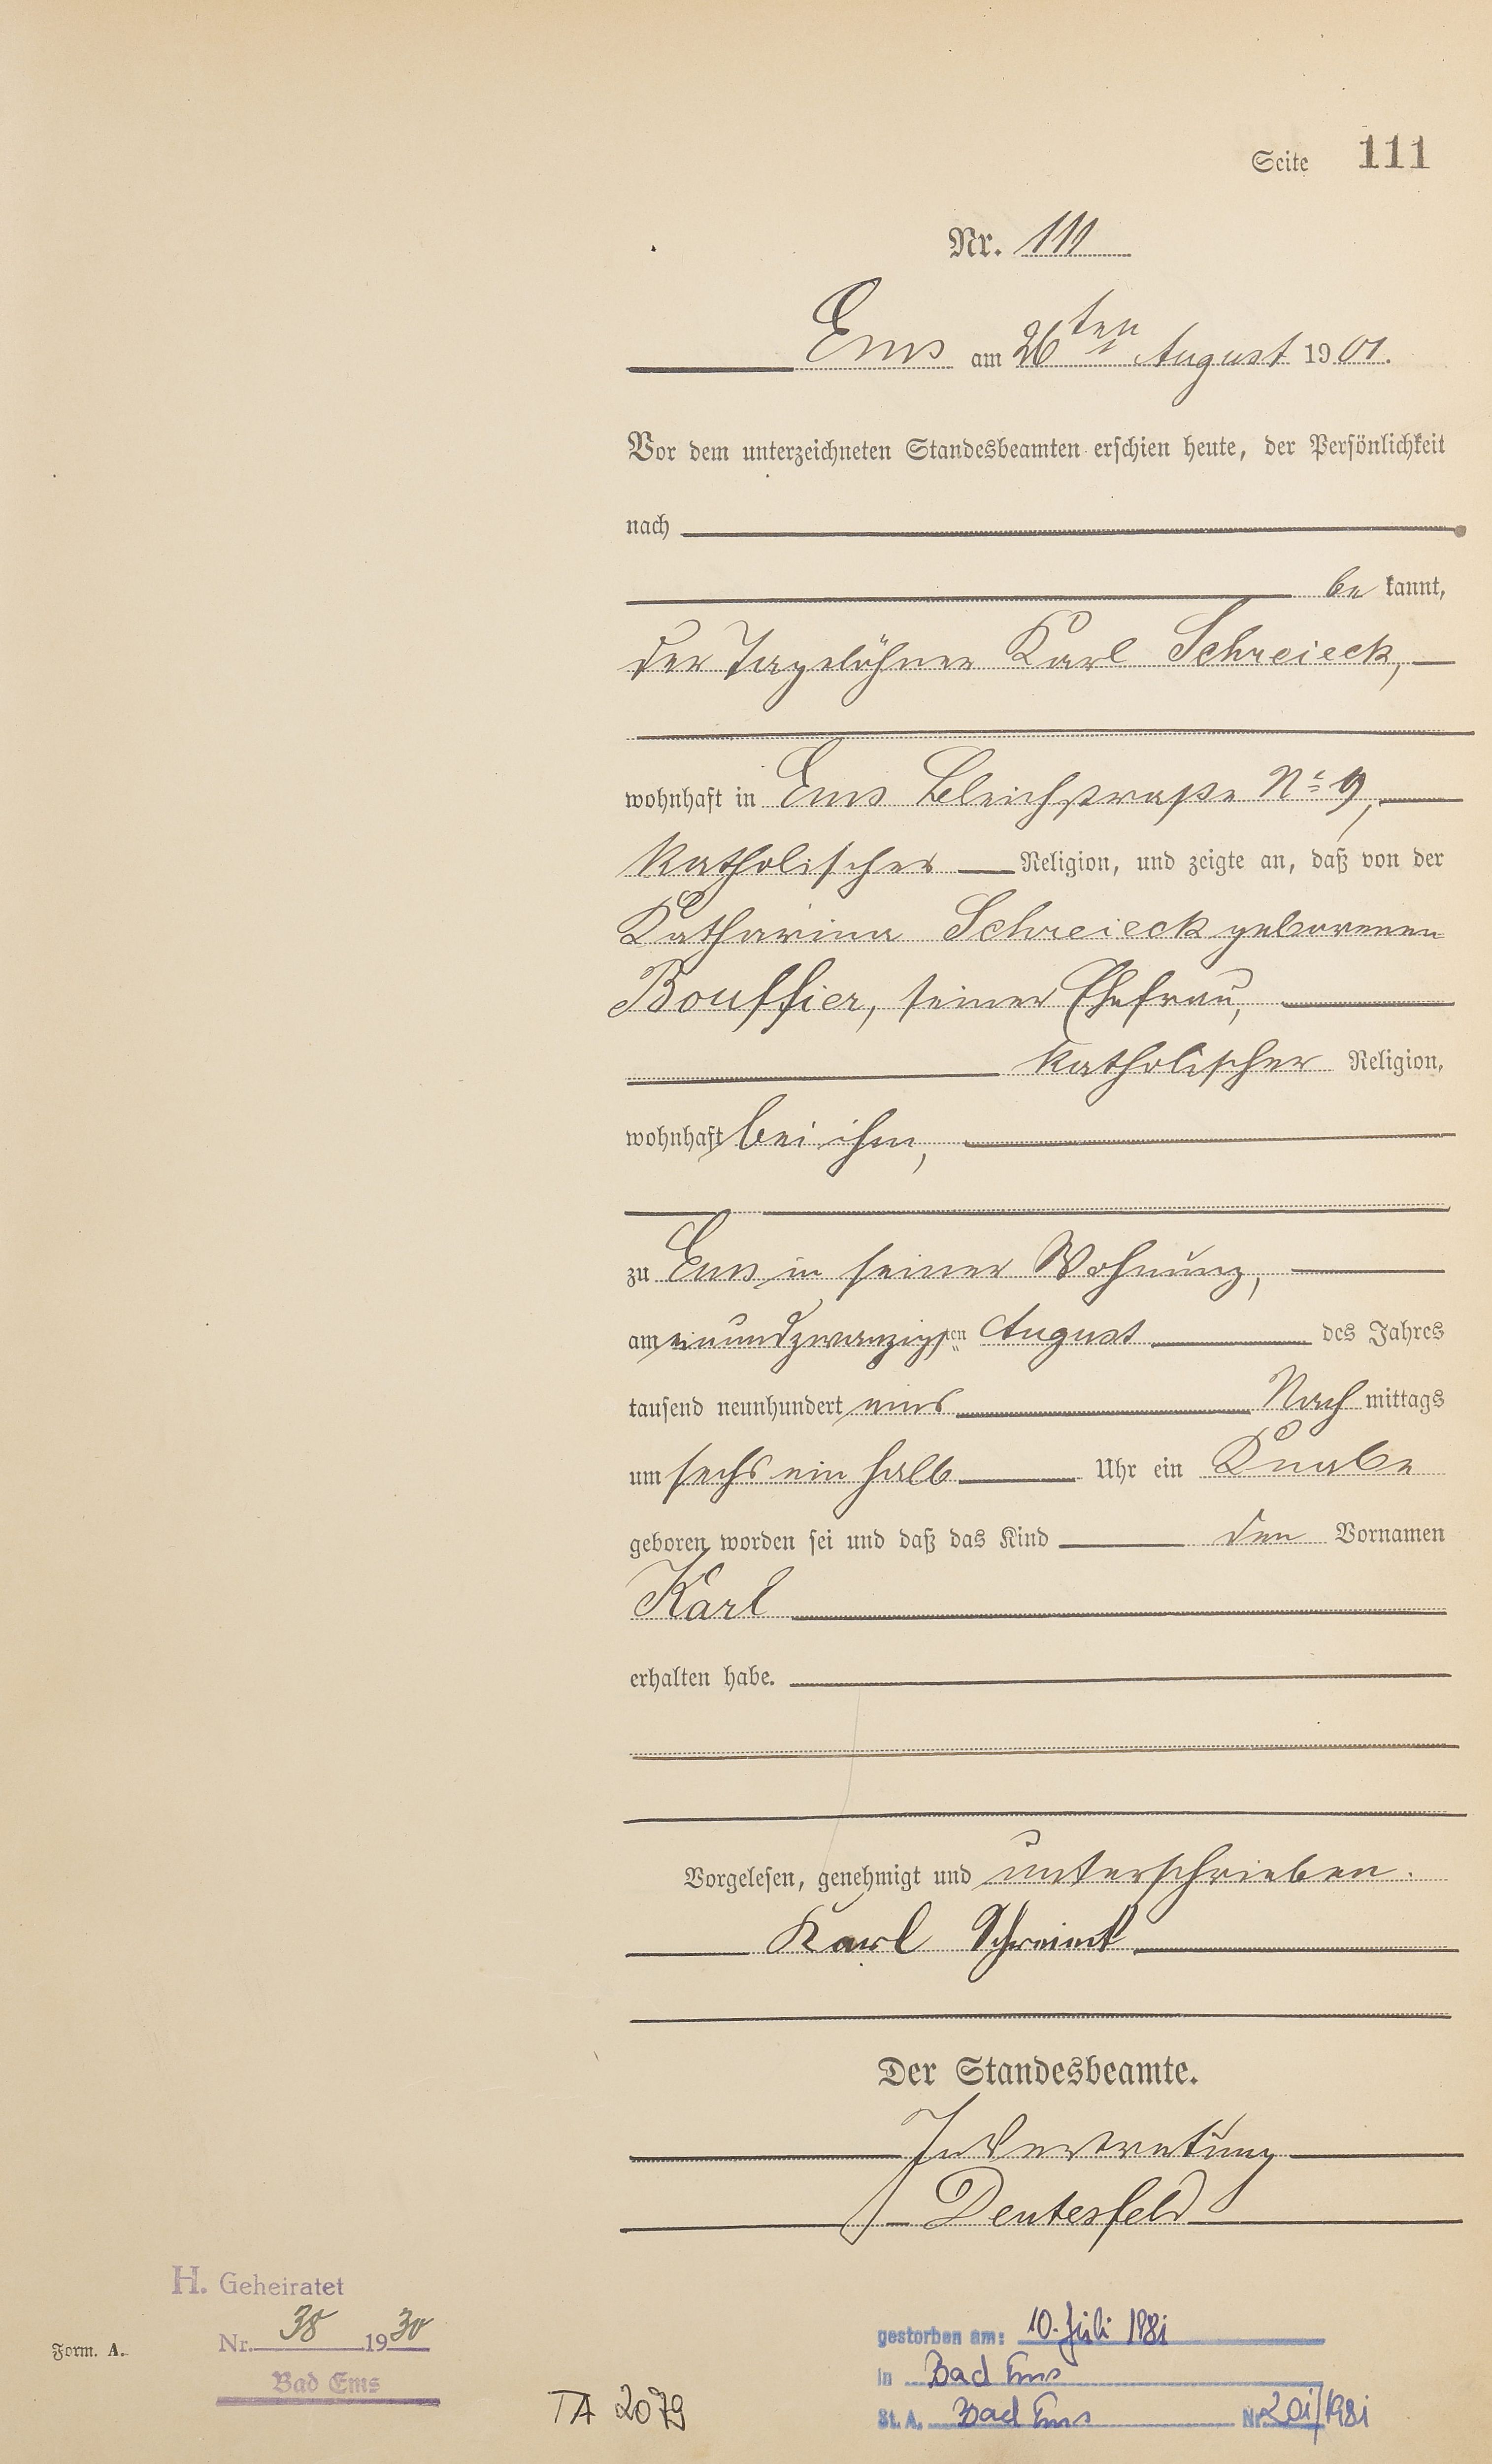 Seite 111
Nr. 111
Ems am 26ten August 1901.
Vor dem unterzeichneten Standesbeamten erschien heute, der Persönlichkeit
nach
be kannt,
der Tagelöhner Karl Schreieck,
wohnhaft in Ems Bleichstraße No 9,
katholischer Religion, und zeigte an, daß von der
Katharina Schreieck geborenen
Bouffier, seiner Ehefrau,
katholischer Religion,
wohnhaft bei ihm,
zu Ems in seiner Wohnung,
am einundzwanzigsten August des Jahres
tausend neunhundert eins Nach mittags
um sechs ein halb Uhr ein Knabe
geboren worden sei und daß das Kind den Vornamen
Karl
erhalten habe.
Vorgelesen, genehmigt und unterschrieben.
Karl Schreieck
Der Standesbeamte.
In Vertretung
Deutesfeld
H. Geheiratet
Nr. 38 1930
Bad Ems
Form. A.
TA 2079
gestorben am: 10. Juli 1981
in Bad Ems
St. A. Bad Ems Nr. 201/1981